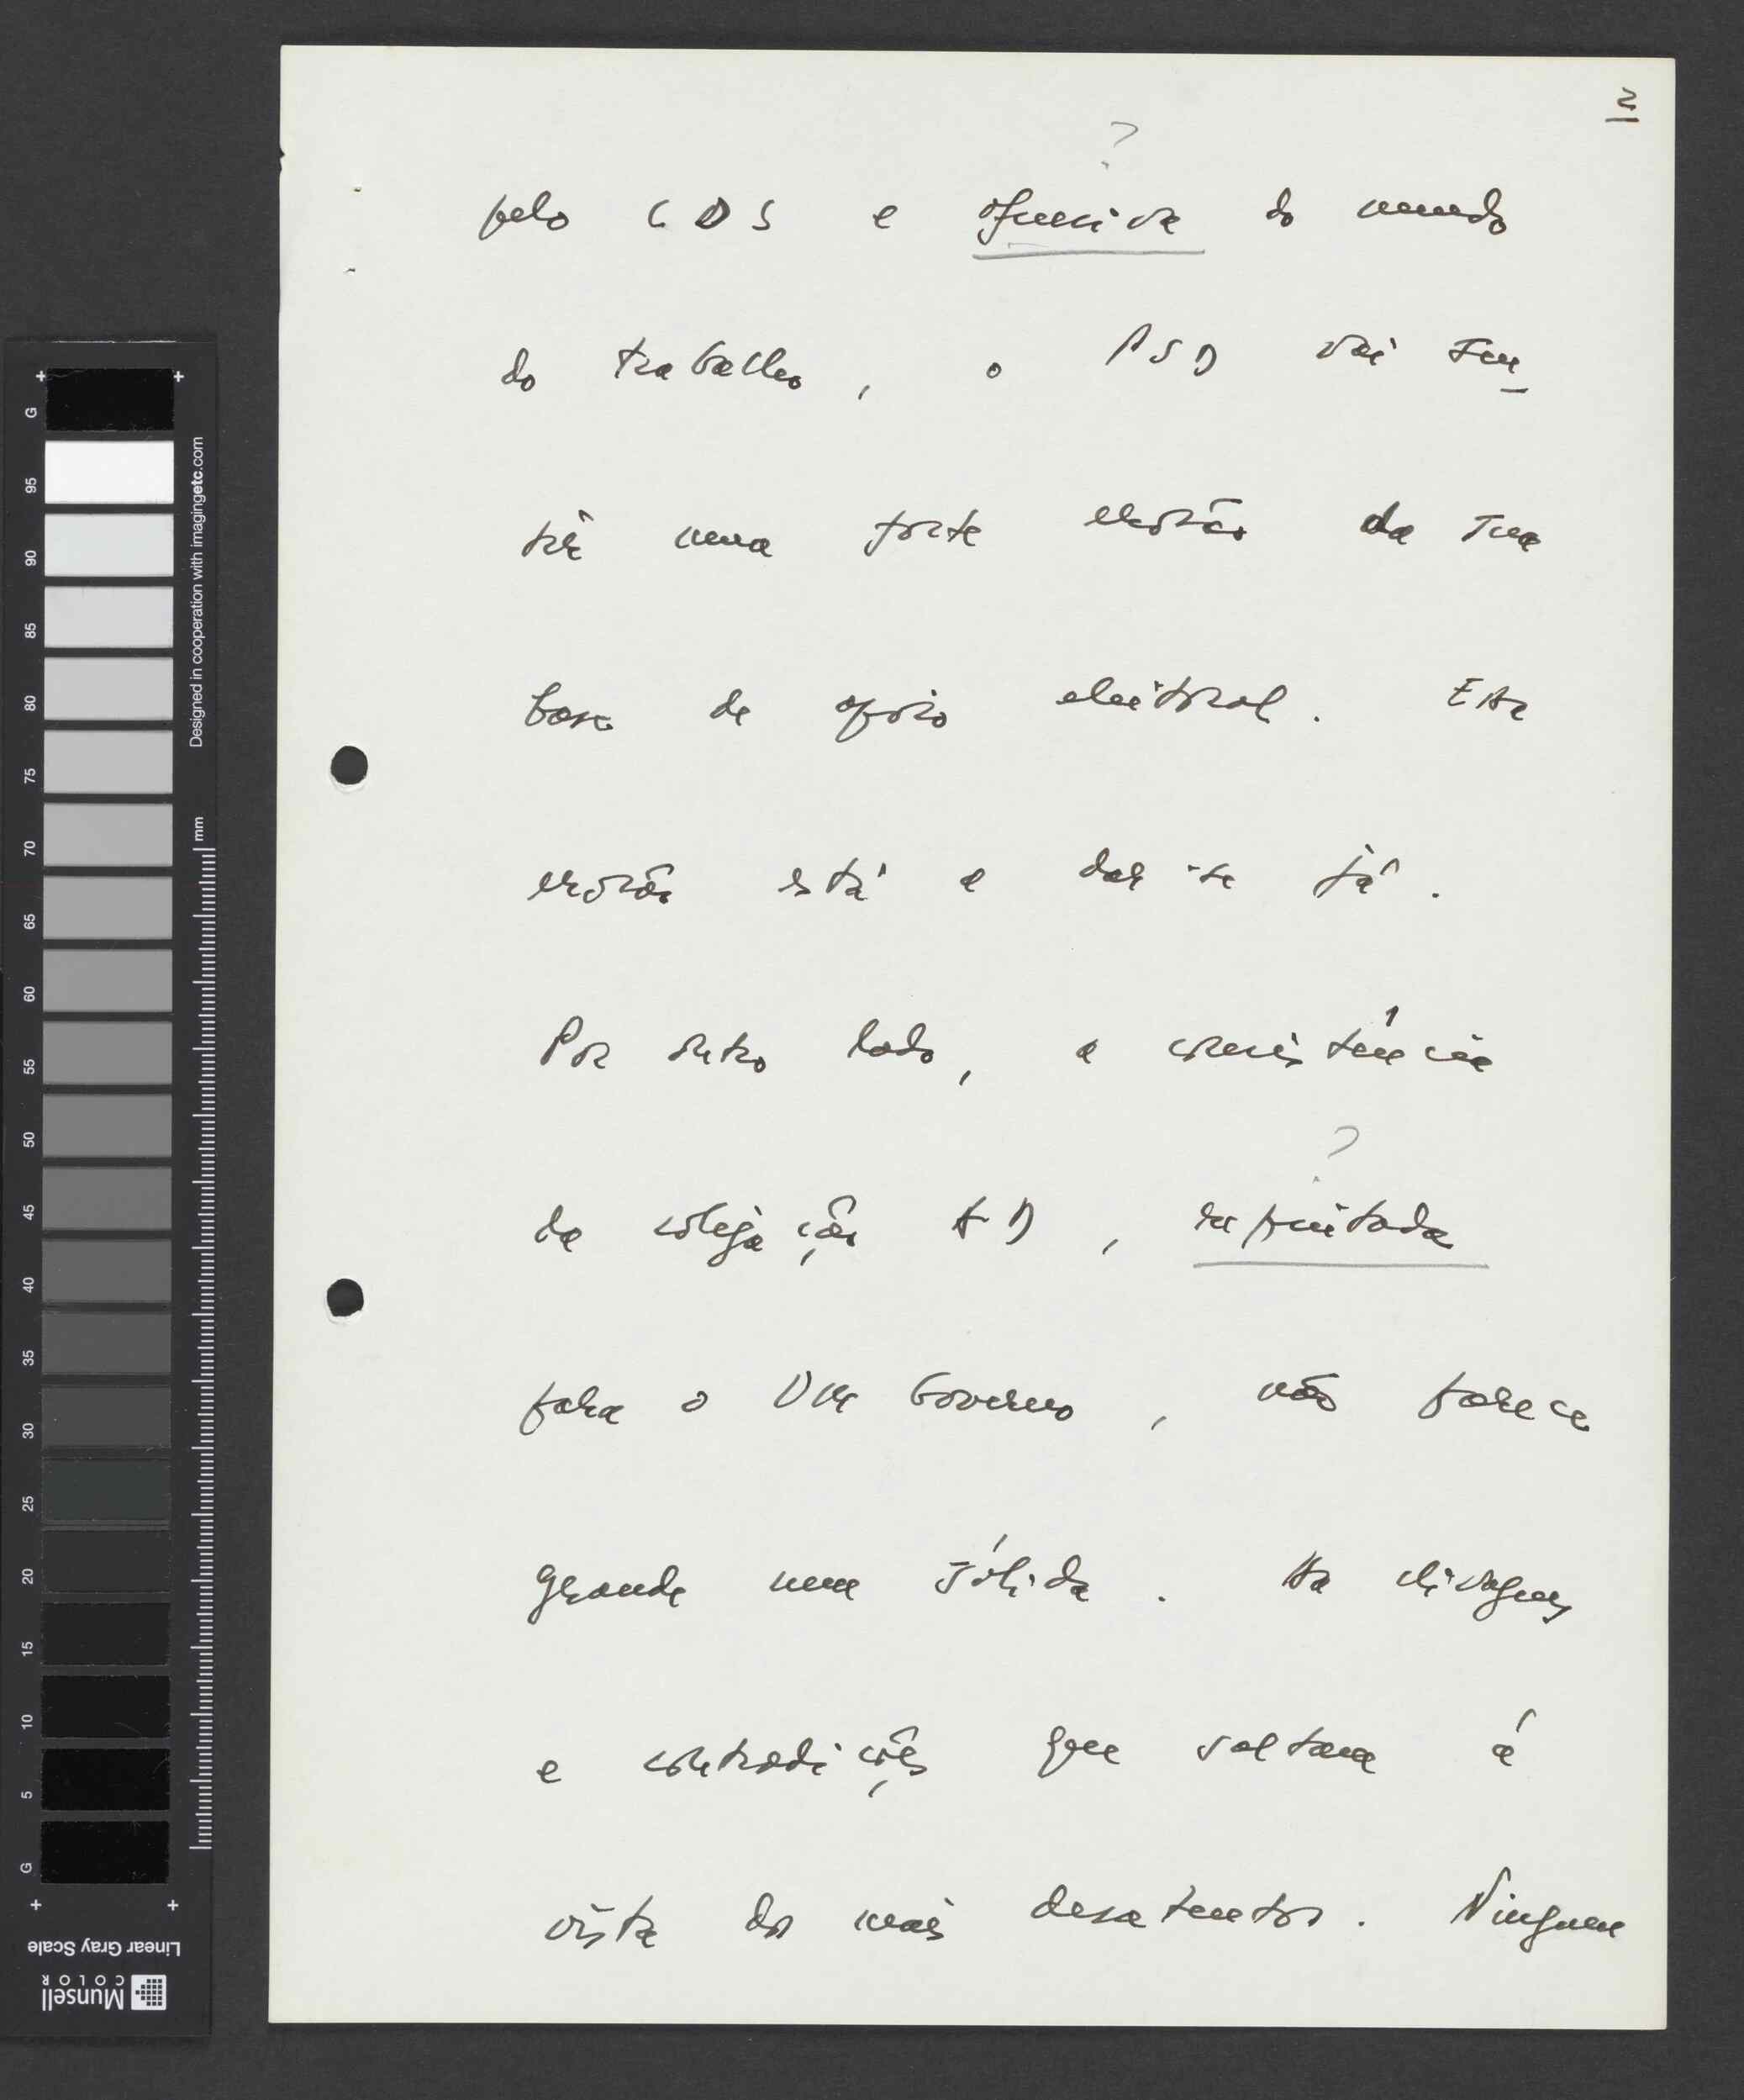 2
?
pelo CDS e ofensiva do mundo
do trabalho, o PSD vai sen-
tir uma forte erosão da sua
base de apoio eleitoral. Esta
erosão está a dar-se já.
Por outro lado, a consistência
?
da coligação AD,
para o Governo, não parece
grande nem sólida. Há clivagens
e contradições que saltam á
vista dos mais desatentos. Ninguem
G 95 90 85 80 75 70 65 60 55 50 45 40 35 30 25 20 15 10 5 G
Designed in cooperation with imagingetc.com
mm
Linear Gray Scale
Munsell
COLOR